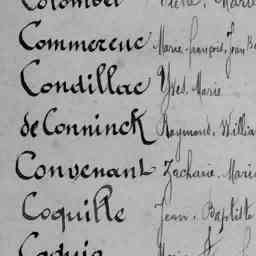 Colombel
Commereuc Marie-François, Jean
Condillac Yves-Marie
de Conninck Raymond, Willia
Convenant Zacharie-Marie
Coquille Jean-Baptiste